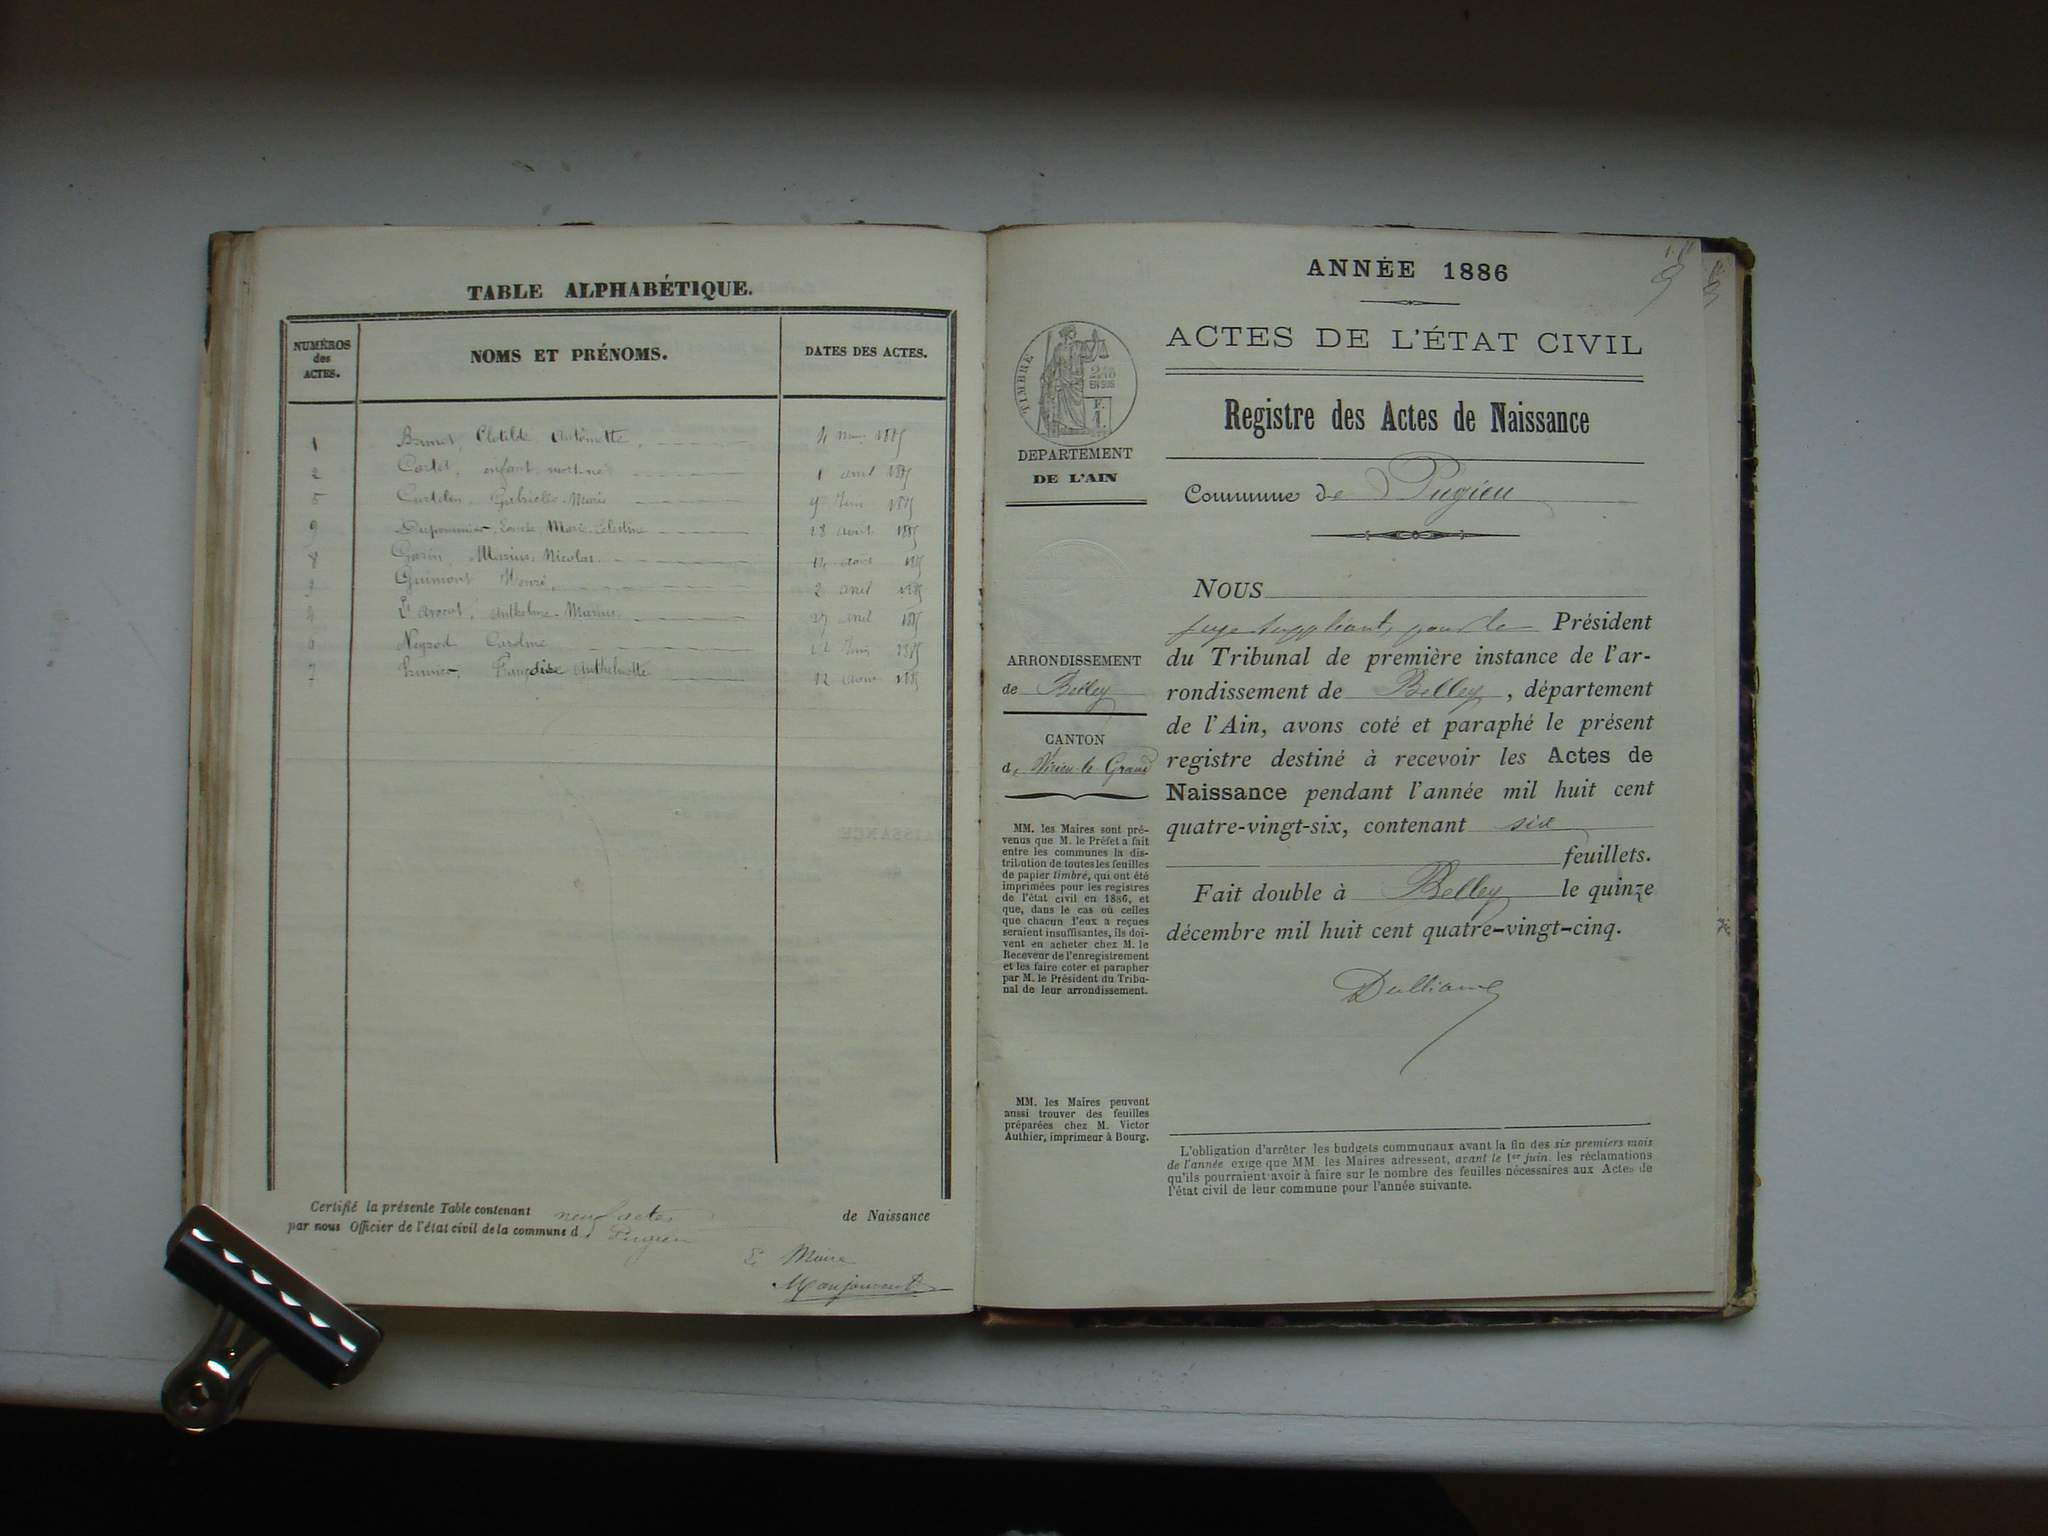 TABLE ALPHABÉTIQUE.
NUMÉROS des ACTES.
NOMS ET PRÉNOMS.
DATES DES ACTES.
1 Clotilde Antoinette 4 1885
2 Cartet, enfant mort-né 1 avril 1885
5 Gabrielle-Marie 9 Juin 1885
9 Marie-Célestine 28 août 1885
8 Garin, Marius Nicolas 14 août 1885
3 Guimont Henri 2 avril 1885
4 Anthelme-Marius 27 avril 1885
6 Neyrod Caroline Juin 1885
7 Françoise Anthelmette 12 août 1885
Certifié la présente Table contenant neuf actes de Naissance
par nous Officier de l'état civil de la commune d Pugieu
Le Maire
ANNÉE 1886
ACTES DE L'ÉTAT CIVIL
Registre des Actes de Naissance
Commune de Pugieu
TIMBRE
2/10
EN SUS
DÉPARTEMENT
DE L'AIN
ARRONDISSEMENT
de Belley
CANTON
de Virieu-le-Grand
MM. les Maires sont pré-
venus que M. le Préfet a fait
entre les communes la dis-
tribution de toutes les feuilles
de papier timbré, qui ont été
imprimées pour les registres
de l'état civil en 1886, et
que, dans le cas où celles
que chacun d'eux a reçues
seraient insuffisantes, ils doi-
vent en acheter chez M. le
Receveur de l'enregistrement
et les faire coter et parapher
par M. le Président du Tribu-
nal de leur arrondissement.
MM. les Maires peuvent
aussi trouver des feuilles
préparées chez M. Victor
Authier, imprimeur à Bourg.
NOUS
juge suppléant, pour le Président
du Tribunal de première instance de l'ar-
rondissement de Belley, département
de l'Ain, avons coté et paraphé le présent
registre destiné à recevoir les Actes de
Naissance pendant l'année mil huit cent
quatre-vingt-six, contenant six
feuillets.
Fait double à Belley le quinze
décembre mil huit cent quatre-vingt-cinq.
L'obligation d'arrêter les budgets communaux avant la fin des six premiers mois
de l'année exige que MM. les Maires adressent, avant le 1er juin, les réclamations
qu'ils pourraient avoir à faire sur le nombre des feuilles nécessaires aux Actes de
l'état civil de leur commune pour l'année suivante.